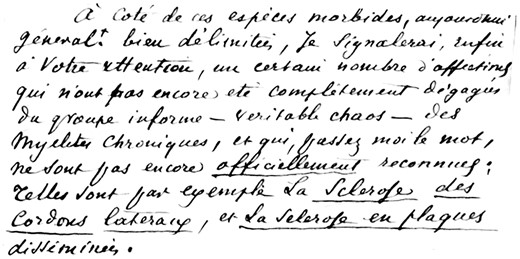 À coté de ces espèces morbides, aujourd'hui
général^t bien délimitées, Je signalerai, enfin
à votre attention, un certain nombre d'affections
qui n'ont pas encore eté complètement dégagées
du groupe informe – veritable chaos – des
Myelites chroniques, et qui, passez moi le mot,
ne sont pas encore officiellement reconnues;
Telles sont par exemple La Sclerose des
Cordons lateraux, et La Sclerose en plaques
disséminées.